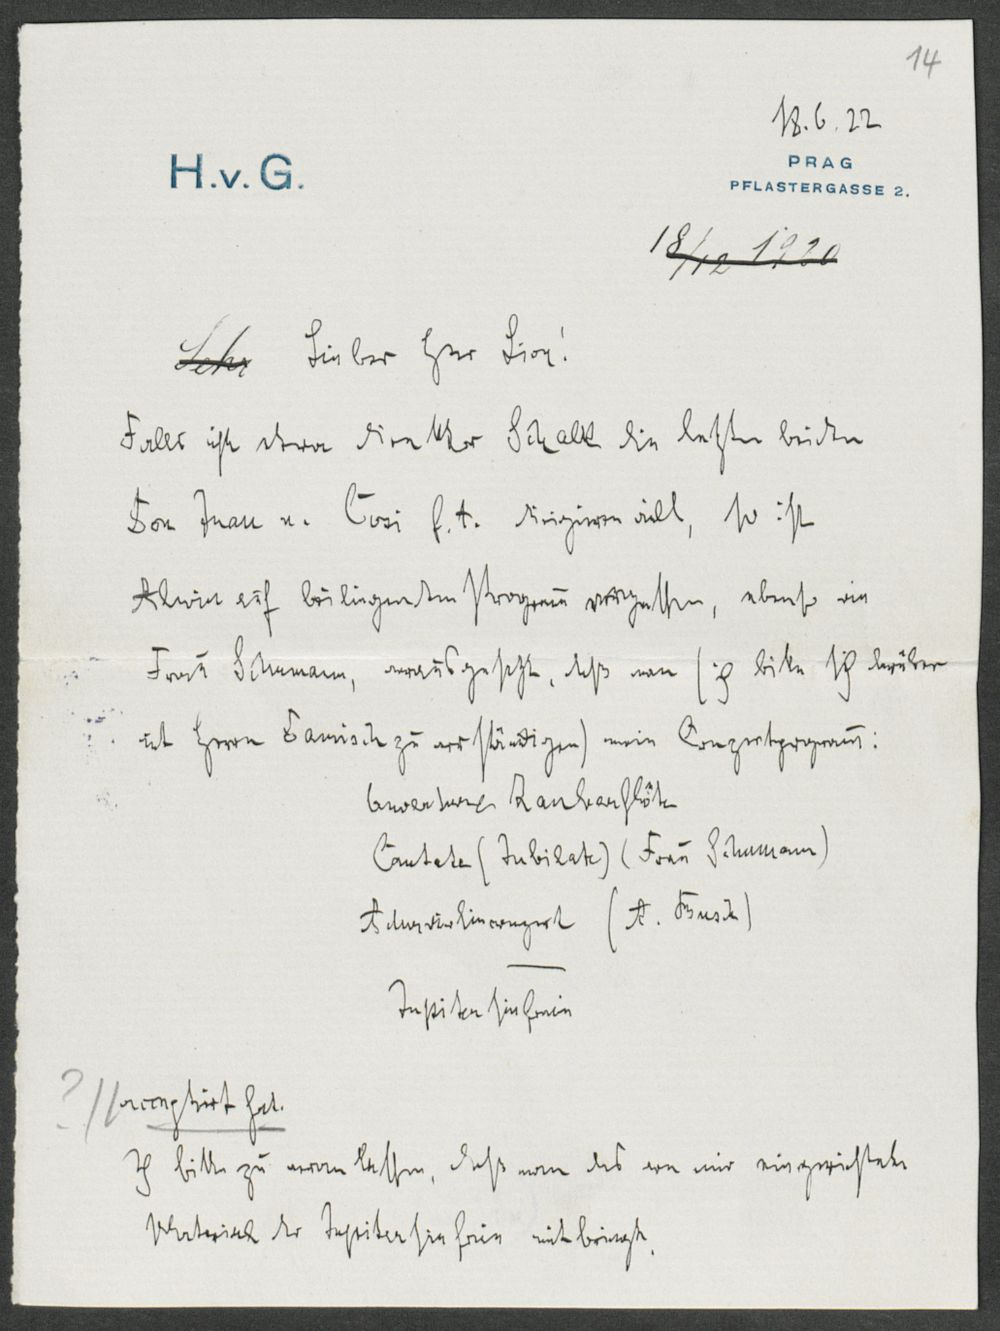 14
18.6.22
H.v.G.
PRAG
PFLASTERGASSE 2.
18/12 1920
Sehr Lieber Herr Lion!
Falls ich etwa Direktor Schalk die letzten beiden
Don Juan u. Cosi f. t. dirigieren will, so ist
Alwin auf beiliegendem Programm vergessen, ebenso wie
Frau Schumann, vorausgesetzt, daß man (ich bitte sich darüber
mit Herrn Damisch zu verständigen) mein Conzertprogramm:
Ouverture Zauberflöte
Cantate (Jubilate) (Frau Schumann)
Adurviolinconzert (A. Busch)
Jupitersinfonie
? // acceptirt hat.
Ich bitte zu veranlassen, daß man das von mir eingerichtete
Material der Jupitersinfonie mitbringt.